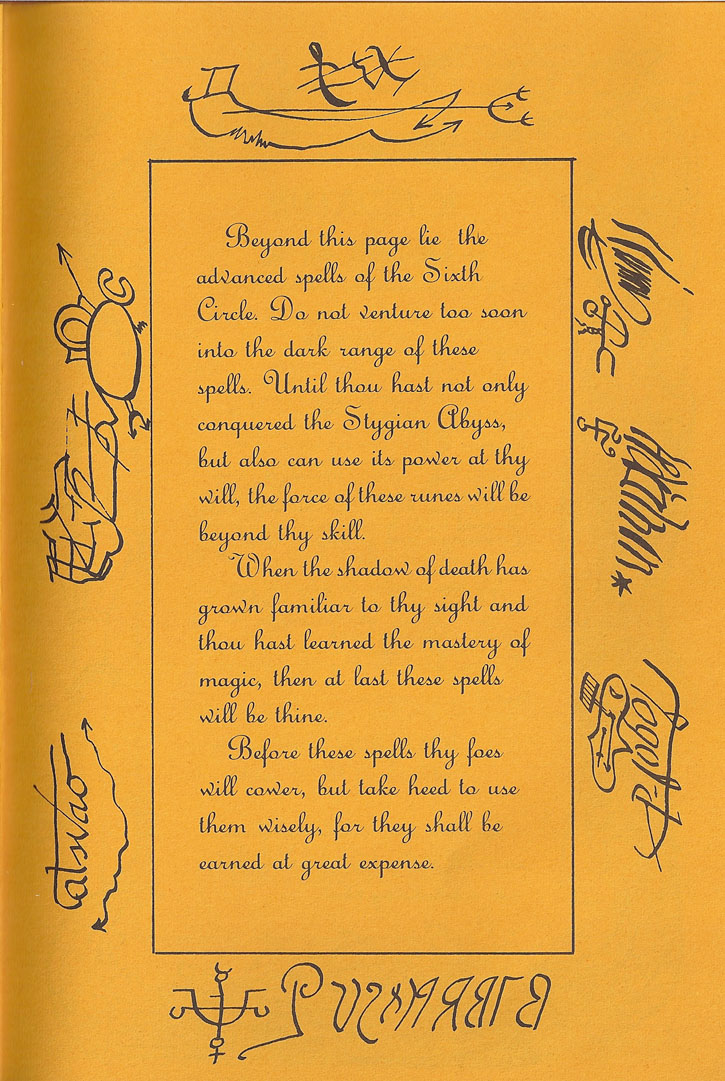 Beyond this page lie the
advanced spells of the Sixth
Circle. Do not venture too soon
into the dark range of these
spells. Until thou hast not only
conquered the Stygian Abyss,
but also can use its power at thy
will, the force of these runes will be
beyond thy skill.
When the shadow of death has
grown familiar to thy sight and
thou hast learned the mastery of
magic, then at last these spells
will be thine.
Before these spells thy foes
will cower, but take heed to use
them wisely, for they shall be
earned at great expense.